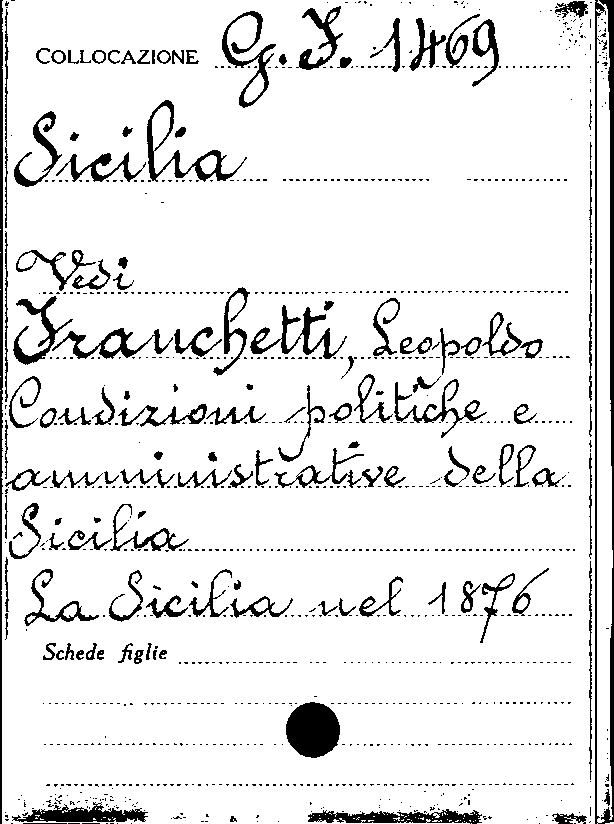 COLLOCAZIONE G. F. 1469
Sicilia
Vedi
Franchetti, Leopoldo
Condizioni politiche e
amministrative della
Sicilia
La Sicilia nel 1876
Schede figlie